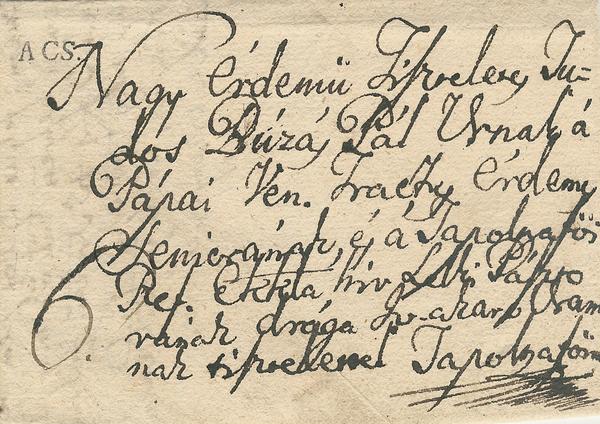 ACS.
Nagy Érdemü Tiszteletes Tu-
dós Búzás Pál Urnak á
Pápai Ven. Tractus Érdemes
Seniorának, és á Tapolczafői
Ref. Ekkla hiv Lelki Pászto
rának drága jo akaro Uram
nak tisztelettel Tapolczafőn
6.